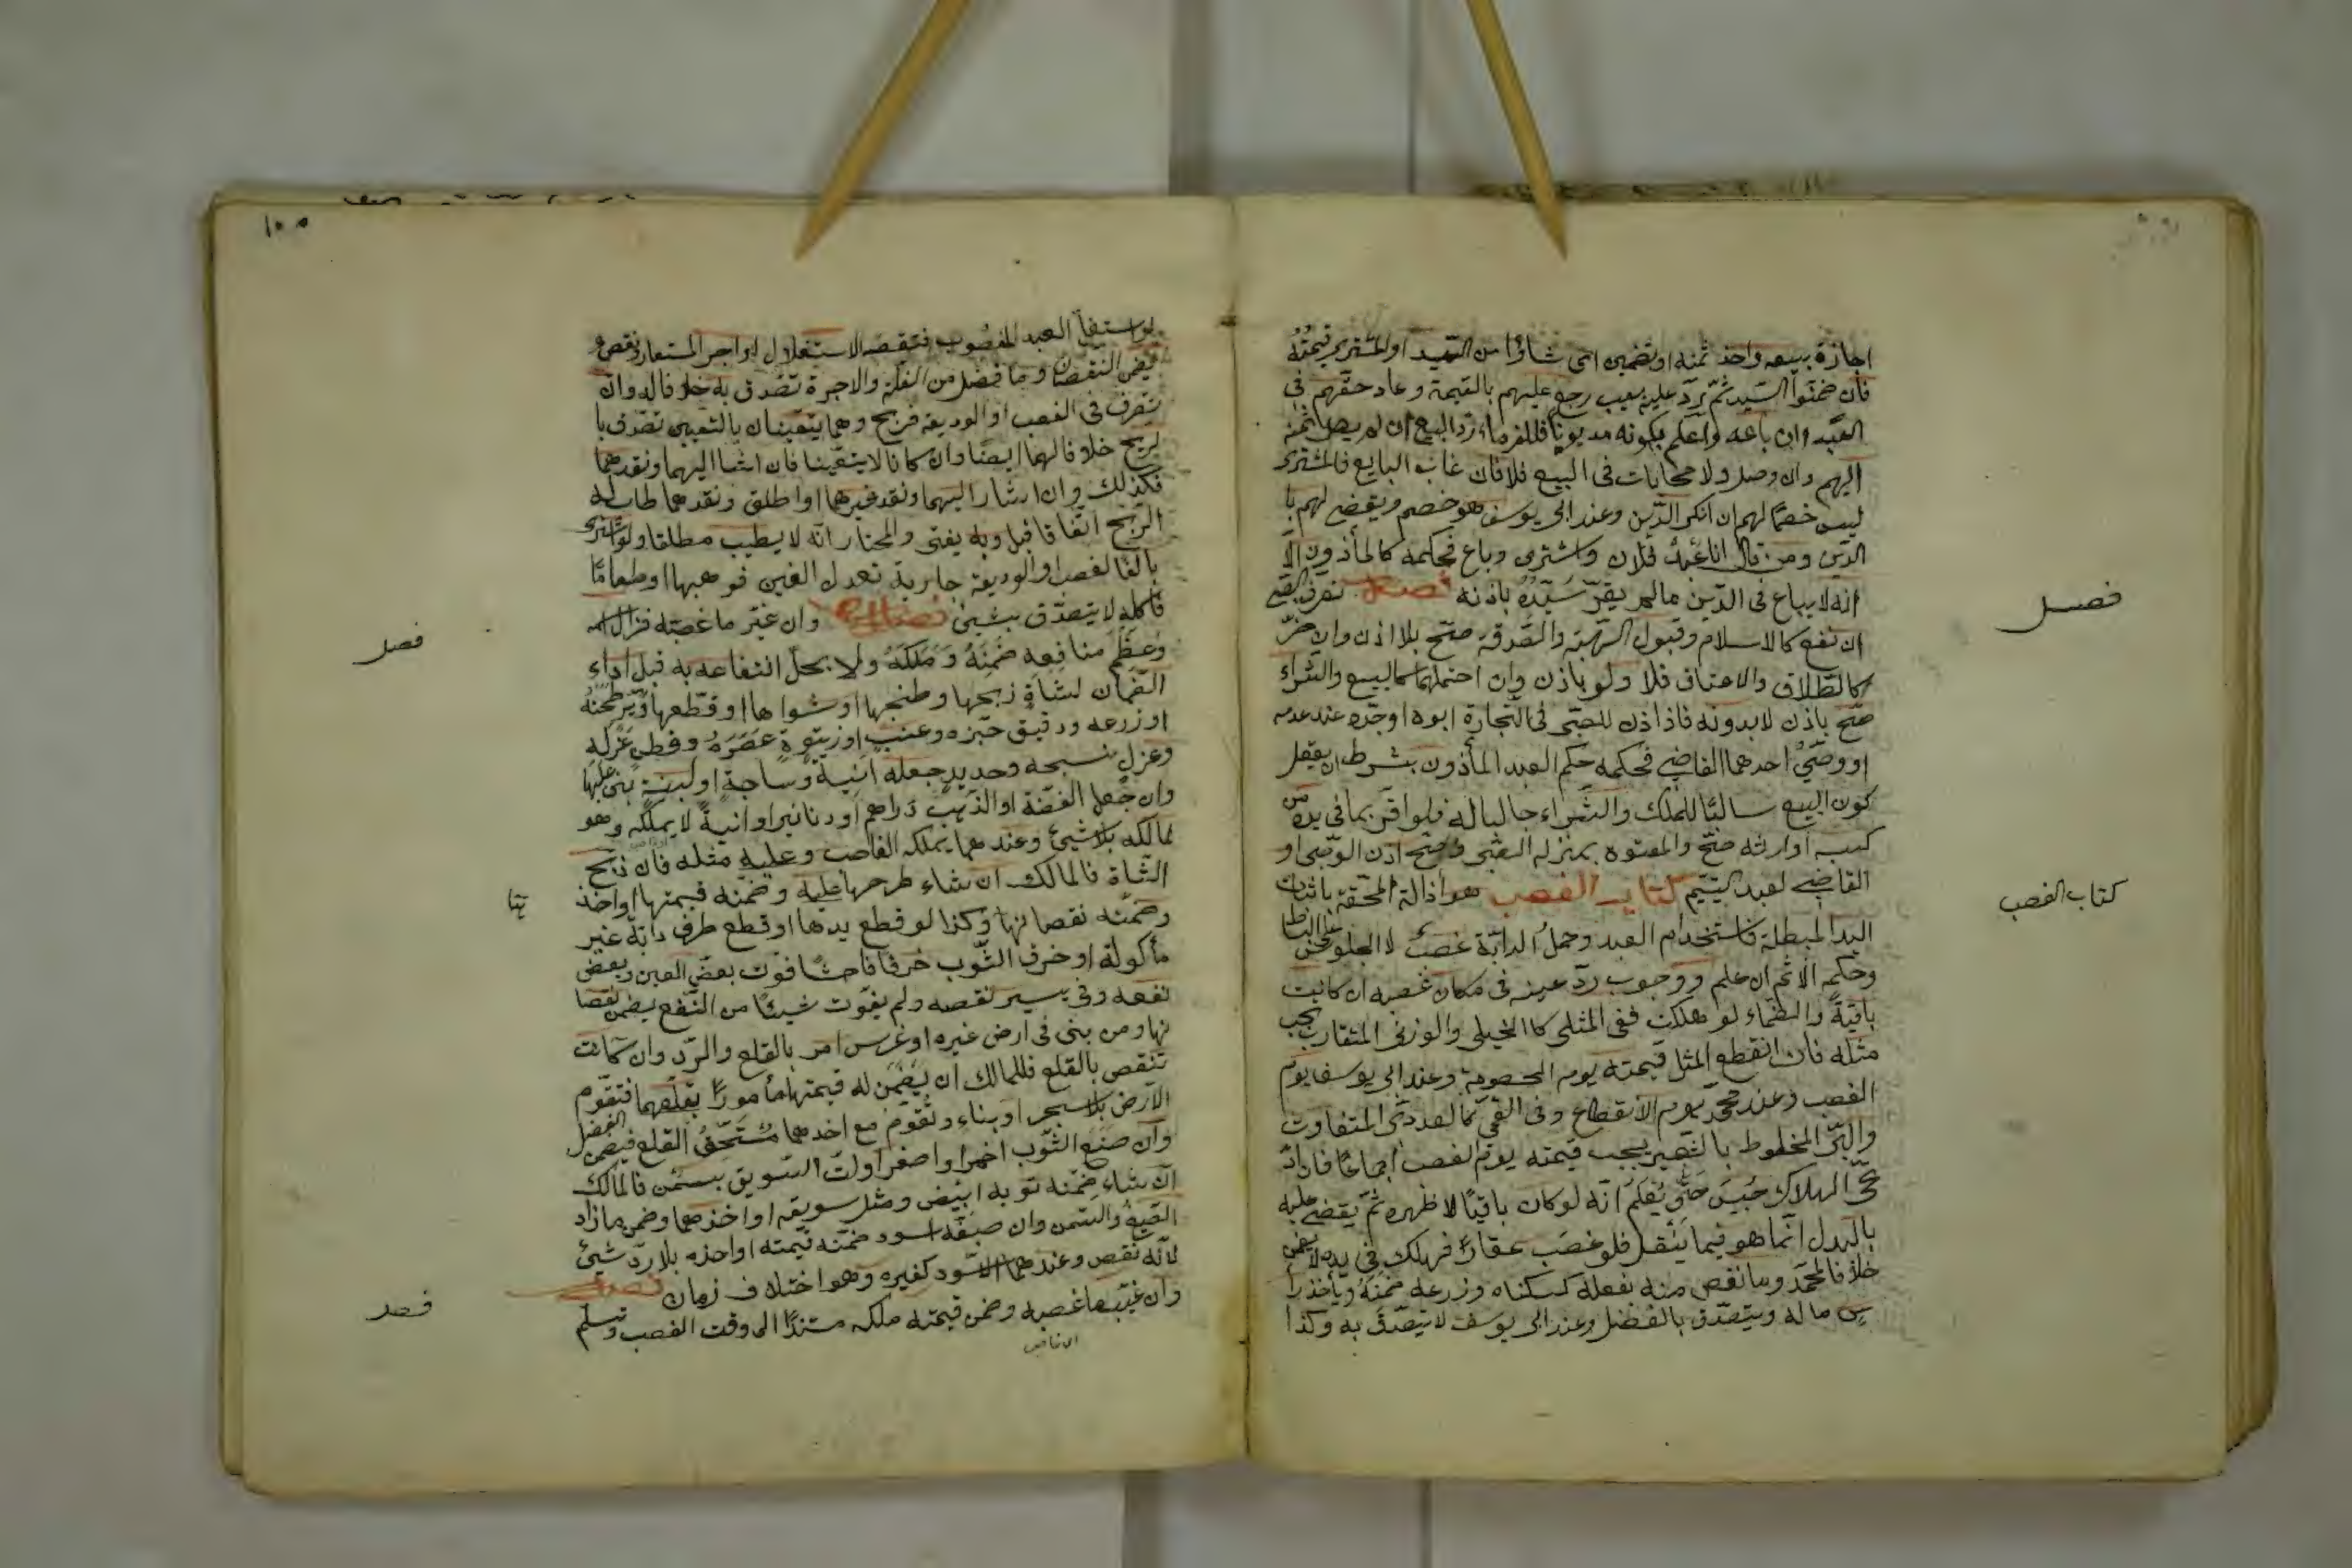 اجازة بيعه واخذ ثمنه او تضمين اى شاؤا من السيد او المشترى قيمته
فان ضمنوا السيد ثم رد عليه بعيب رجع عليهم بالقيمة وعاد حقهم فى
العبد وان باعه واعلم بكونه مديونا فللغرماء رد البيع ان لم يصل ثمنه
اليهم وان وصل ولا محابات فى البيع فلا فان غاب البايع فالمشترى
ليس خصما لهم ان انكر الدين وعند ابى يوسف هو خصم ويقضى لهم با
الدين ومن قال انا عبد فلان واشترى وباع فحكمه كالمأذون الا
انه لا يباع فى الدين ما لم يقر سيده باذنه فصل تصرف الصبى
ان نفع كالاسلام وقبول الهبة والصدقة صح بلا اذن وان ضر
كالطلاق والاعتاق فلا ولو باذن وان احتملهما كالبيع والشراء
صح باذن لا بدونه فاذا اذن للصبى فى التجارة ابوه او جده عند عدمه
او وصى احدهما القاضى فحكمه حكم العبد المأذون بشرط ان يعقل
كون البيع سالبا للملك والشراء جالبا له فلو اقر بما فى يده من
كسب او ارثه صح والمعتوه بمنزلة الصبى وصح اذن الوصى او
القاضى لعبد اليتيم كتاب الغصب هو ازالة المحقة باثبات
اليد المبطلة فاستخدام العبد وحمل الدابة غصب لا الجلوس على البساط
وحكمه الاثم ان علم ووجوب رد عينه فى مكان غصبه ان كانت
باقية والضماء لو هلكت ففى المثلى كاالكيلى والوزنى المتقارب يجب
مثله فان انقطع المثل قيمته يوم الخصومة وعند ابى يوسف يوم
الغصب وعند محمد يوم الانقطاع وفى القيمى كالعددى المتفاوت
والبر المخلوط بالشعير يجب قيمته يوم الغصب اجماعا فان اد
عى الهلاك حبس حتى يعلم انه لو كان باقيا لاظهره ثم يقضى عليه
بالبدل انما هو فيما ينقل فلو غصب عقارا فهلك فى يده لا يضمن
خلافا لمحمد وما نقص منه بفعله كسكناه وزرعه ضمنه ويأخذ رأ
س ماله ويتصدق بالفضل وعند ابى يوسف لا يتصدق به وكذا
فصل
كتاب الغصب
١٠٥
لو استغل العبد المغصوب فنقصه الاستغلال او اجر المستعار ونقص
ضمن النقصان وما فضل من الغلة والاجرة تصدق به خلافا له وان
تصرف فى الغصب او الوديعة فربح وهما يتعينان بالتعيين تصدق با
لربح خلافا لهما ايضا وان كانا لا يتعينا فان اشا اليهما ونقدهما
فكذلك وان اشار اليهما ونقد غيرهما او اطلق ونقدهما طاب له
الربح اتفاقا قيل وبه يفتى والمختار انه لا يطيب مطلقا ولو اشترى
بالف الغصب او الوديعة جارية تعدل الفين فوهبها او طعاما
فاكله لا يتصدق بشيئ فصل وان غير ما غصبه فزال اسمه
وعظم منافعه ضمنه وملكه ولا يحل انتفاعه به قبل اداء
الضمان لشاة ذبحها وطبخها او شواها او قطعها وبر طحنه
او زرعه ودقيق خبزه وعنب او زيتون عصره وقطن غزله
وغزل نسجه وحديد جعله انية وساجة او لبنة بنى عليها
وان جعل الفضة او الذهب دراهم او دنانير او انية لا يملكه وهو
لمالكه بلا شيئ وعندهما يملكه الغاصب وعليه مثله فان ذبح
الشاة فالمالك ان شاء طرحها عليه وضمنه قيمتها او اخذ
وضمنه نقصانها وكذا لو قطع يدها او قطع طرف دابة غير
مأكولة او خرق الثوب خرقا فاحشا فوت بعض العين وبعض
نفعه وفى يسير نقصه ولم يفوت شيئا من النفع يضمن نقصا
نها ومن بنى فى ارض غيره او غرس امر بالقلع والرد وان كانت
تنقص بالقلع فللمالك ان يضمن له قيمتها مأمورا بقلعهما فتقوم
الارض بلا شجر او بناء وتقوم مع احدهما مستحق القلع فيضمن الفضل
وان صبغ الثوب احمر او اصفر او لت السويق بسمن فالمالك
ان شاء ضمنه ثوبه ابيض ومثل سويقه او اخذهما وضمن ما زاد
الصبغ والسمن وان صبغه اسود ضمنه قيمته او اخذه بلا رد شيئ
لانه نقص وعندهما الاسود كغيره وهو اختلاف زمان فصل
وان غيب ما غصبه وضمن قيمته ملكه مستندا الى وقت الغصب وتسلم
فصل
فصل